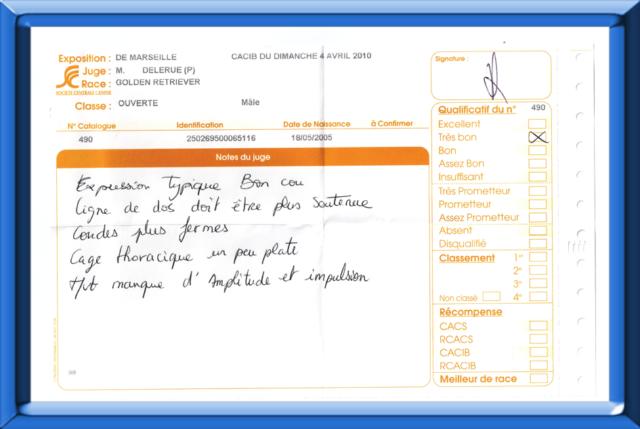 Exposition : DE MARSEILLE CACIB DU DIMANCHE 4 AVRIL 2010
Juge : M. DELERUE (P)
Race : GOLDEN RETRIEVER
SOCIETE CENTRALE CANINE
Classe : OUVERTE Mâle
N° Catalogue Identification Date de Naissance à Confirmer
490 250269500065116 18/05/2005
Notes du juge
Expression Typique Bon cou
ligne de dos doit être plus soutenue
Coudes plus fermes
Cage thoracique un peu plate
Mvt manque d'Amplitude et impulsion
Signature :
Qualificatif du n° 490
Excellent
Très bon
Bon
Assez Bon
Insuffisant
Très Prometteur
Prometteur
Assez Prometteur
Absent
Disqualifié
Classement 1er
2e
3e
Non classé 4e
Récompense
CACS
RCACS
CACIB
RCACIB
Meilleur de race